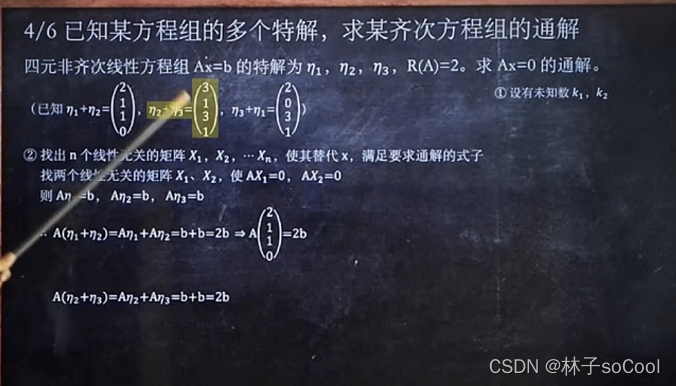 4/6 已知某方程组的多个特解，求某齐次方程组的通解
四元非齐次线性方程组 Ax=b 的特解为 η₁，η₂，η₃，R(A)=2。求 Ax=0 的通解。
① 设有未知数 k₁，k₂
（已知 η₁+η₂=(2 1 1 0)，η₂+η₃=(3 1 3 1)，η₃+η₁=(2 0 3 1)）
② 找出 n 个线性无关的矩阵 X₁，X₂，⋯Xₙ，使其替代 x，满足要求通解的式子
找两个线性无关的矩阵 X₁、X₂，使 AX₁=0，AX₂=0
则 Aη =b，Aη₂=b，Aη₃=b
A(η₁+η₂)=Aη₁+Aη₂=b+b=2b ⇒ A(2 1 1 0)=2b
A(η₂+η₃)=Aη₂+Aη₃=b+b=2b
CSDN @林子soCool